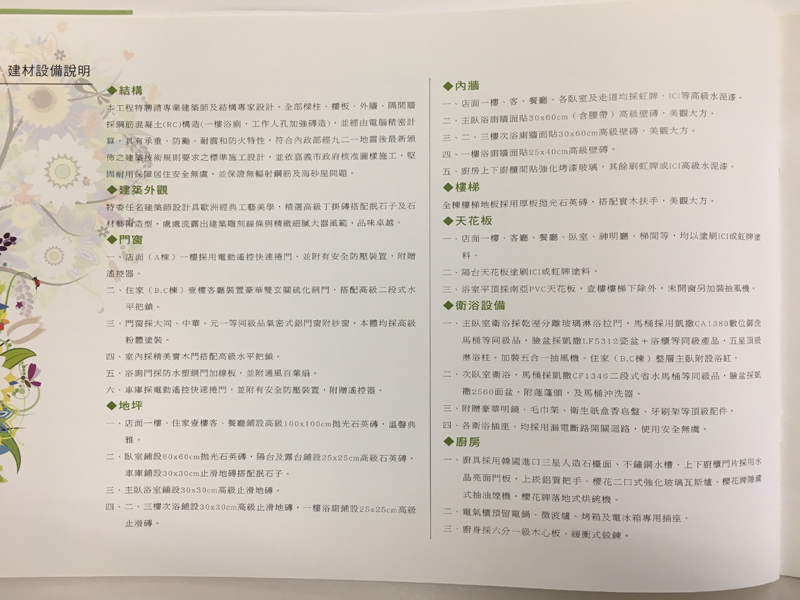 建材設備說明
◆結構
本工程特聘請專業建築師及結構專家設計，全部樑柱、樓板、外牆、隔間牆
採鋼筋混凝土(RC)構造(一樓浴廁，工作人孔加強磚造)，並經由電腦精密計
算，具有承重、防颱、耐震和防火特性，符合內政部經九二一地震後最新頒
佈之建築技術規則要求之標準施工設計，並依嘉義市政府核准圖樣施工，堅
固耐用保障居住安全無慮，並保證無輻射鋼筋及海砂屋問題。
◆建築外觀
特委任名建築師設計具歐洲經典工藝美學，精選高級丁掛磚搭配抿石子及石
材藝術造型，處處流露出建築雕刻線條與精緻細膩大器風範，品味卓越。
◆門窗
一、店面（A棟）一樓採用電動遙控快速捲門，並附有安全防壓裝置，附贈
遙控器。
二、住家（B.C棟）壹樓客廳裝置豪華雙玄關硫化銅門，搭配高級二段式水
平把鎖。
三、門窗採大同、中華、元一等同級品氣密式鋁門窗附紗窗，本體均採高級
粉體塗裝。
四、室內採精美實木門搭配高級水平把鎖。
五、浴廁門採防水塑鋼門加線板，並附通風百葉扇。
六、車庫採電動遙控快速捲門，並附有安全防壓裝置，附贈遙控器。
◆地坪
一、店面一樓、住家壹樓客、餐廳鋪設高級100x100cm拋光石英磚，溫馨典
雅。
二、臥室鋪設60x60cm拋光石英磚，陽台及露台鋪設25x25cm高級石英磚，
車庫鋪設30x30cm止滑地磚搭配抿石子。
三、主臥浴室鋪設30x30cm高級止滑地磚。
四、二、三樓次浴鋪設30x30cm高級止滑地磚，一樓浴廁鋪設25x25cm高級
止滑磚。
◆內牆
一、店面一樓、客、餐廳、各臥室及走道均採虹牌、ICI等高級水泥漆。
二、主臥浴廁牆面貼30x60cm（含腰帶）高級壁磚，美觀大方。
三、二、三樓次浴廁牆面貼30x60cm高級壁磚，美觀大方。
四、一樓浴廁牆面貼25x40cm高級壁磚。
五、廚房上下廚櫃間貼強化烤漆玻璃，其餘刷虹牌或ICI高級水泥漆。
◆樓梯
全棟樓梯地板採用厚板拋光石英磚，搭配實木扶手，美觀大方。
◆天花板
一、店面一樓、客廳、餐廳、臥室、神明廳、梯間等，均以塗刷ICI或虹牌塗
料。
二、陽台天花板塗刷ICI或虹牌塗料。
三、浴室平頂採南亞PVC天花板，壹樓樓梯下除外，未開窗另加裝抽風機。
◆衛浴設備
一、主臥室衛浴採乾溼分離玻璃淋浴拉門，馬桶採用凱撒CA1380數位御洗
馬桶等同級品，臉盆採凱撒LF5312瓷盆＋浴櫃等同級產品，五星頂級
淋浴柱。加裝五合一抽風機。住家（B.C棟）整層主臥附設浴缸。
二、次臥室衛浴，馬桶採凱撒CF1346二段式省水馬桶等同級品，臉盆採凱
撒2560面盆，附蓮蓬頭，及馬桶沖洗器。
三、附贈豪華明鏡、毛巾架、衛生紙盒香皂盤、牙刷架等頂級配件。
四、各衛浴插座，均採用漏電斷路開關迴路，使用安全無慮。
◆廚房
一、廚具採用韓國進口三星人造石檯面、不鏽鋼水槽、上下廚櫃門片採用水
晶亮面門板，上崁鋁質把手，櫻花二口式強化玻璃瓦斯爐、櫻花牌隱藏
式抽油煙機，櫻花牌落地式烘碗機。
二、電氣櫃預留電鍋、微波爐、烤箱及電冰箱專用插座。
三、廚身採六分一級木心板、緩衝式鉸鍊。